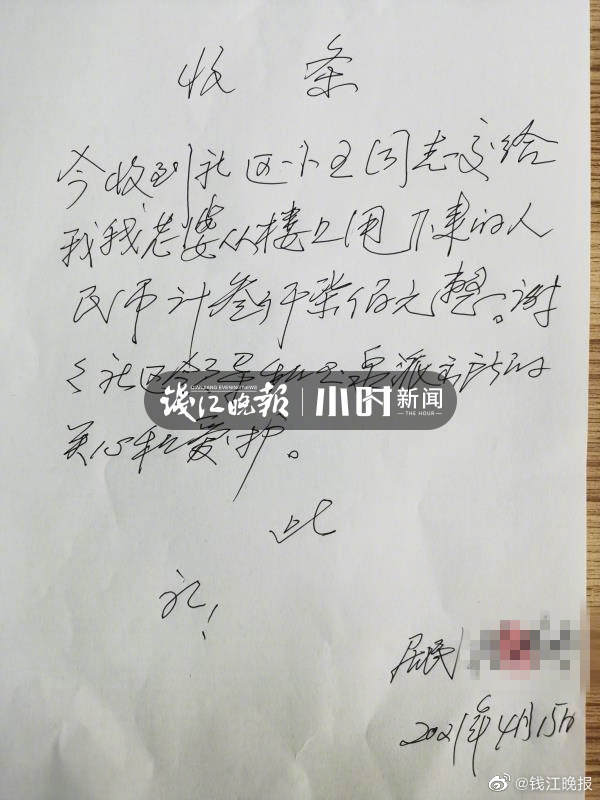 收 条
今收到社区小王同志交给
我我老婆从楼上甩下来的人
民币计叁仟柒佰元整。谢
々社区 派出所的
钱江晚报 QIANJIANG EVENING NEWS 小时新闻 THE HOUR
关心和爱护。
此
礼!
居民
2021年4月15日
@钱江晚报